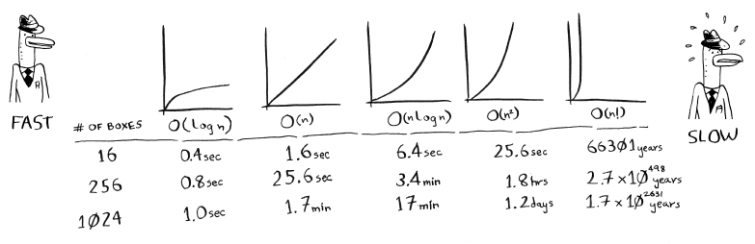 FAST
SLOW
# OF BOXES O(log n) O(n) O(n log n) O(n²) O(n!)
16 0.4sec 1.6sec 6.4sec 25.6sec 66301years
256 0.8sec 25.6sec 3.4min 1.8hrs 2.7×10⁴⁹⁸years
1024 1.0sec 1.7min 17min 1.2days 1.7×10²⁶³¹years